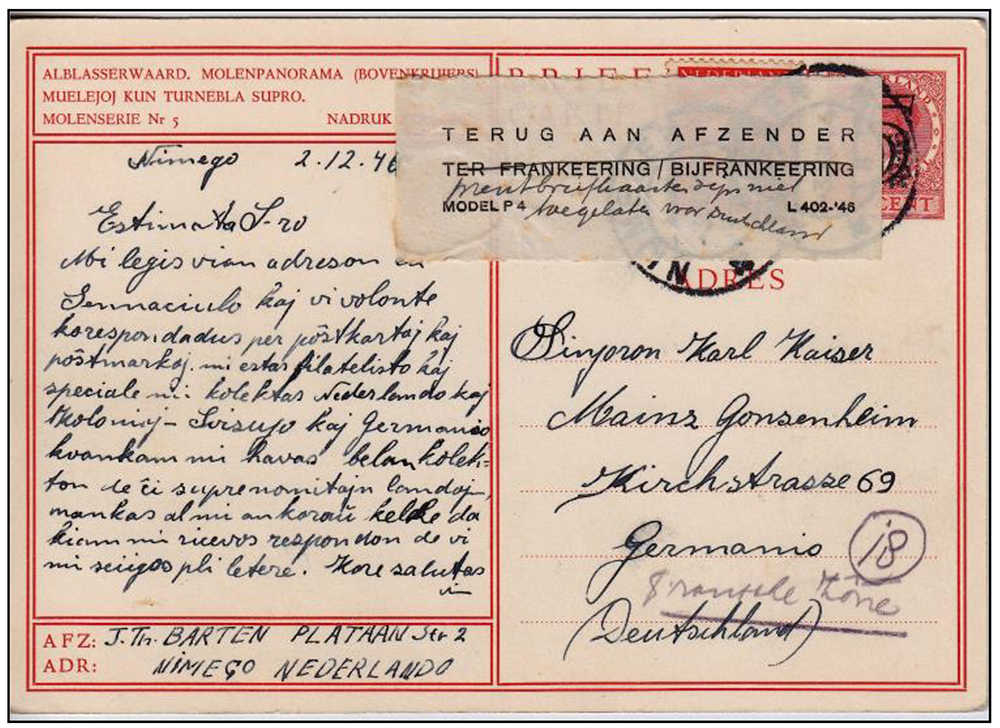 ALBLASSERWAARD. MOLENPANORAMA (BOVENKRUIERS)
MUELEJOJ KUN TURNEBLA SUPRO.
MOLENSERIE Nr 5 NADRUK
Nimego 2.12.46
Estimata S-ro
Mi legis vian adreson en
Sennaciulo kaj vi volonte
korespondadus per pôstkartoj kaj
pôstmarkoj. mi estas filatelisto kaj
speciale mi kolektas Nederlando kaj
Kolonioj - Svisujo kaj Germanio
kvankam mi havas belan kolek=
ton de ĉi supre nomitajn landoj,
mankas al mi ankoraŭ kelke da
kiam mi ricevos respondon de vi
mi sciigos pli letere. Kore salutas
vin
AFZ: J.Th. BARTEN PLATAAN Str 2
ADR: NIMEGO NEDERLANDO
BRIEF
KAART
NEDERLAND
TERUG AAN AFZENDER
TER FRANKEERING / BIJFRANKEERING
prentbriefkaarten zijn niet
MODEL P 4 L 402-'46
toegelaten voor Duitschland
CENT
ADRES
Sinjoron Karl Kaiser
Mainz Gonsenheim
Kirchstrasze 69
Germanio
18
Fransche Zône
(Deutschland)